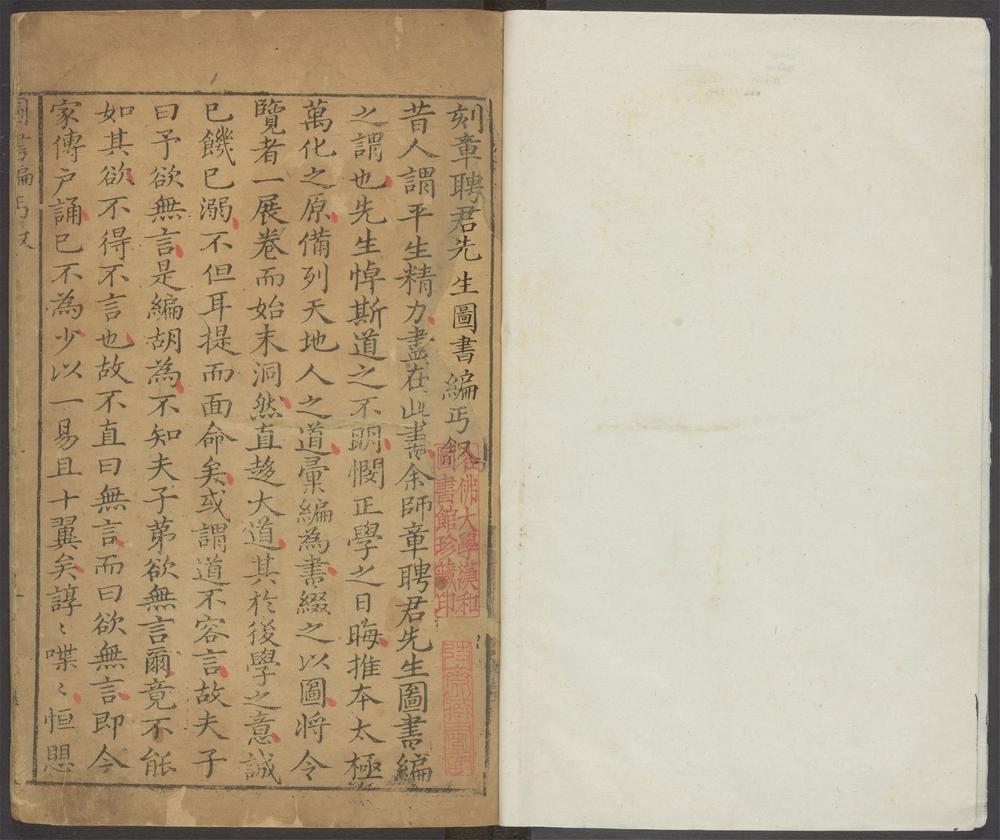 刻章聘君先生圖書編丐叙
昔人謂平生精力盡在此書余師章聘君先生圖書編
之謂也先生悼斯道之不明憫正學之日晦推本太極
萬化之原備列天地人之道彙編為書綴之以圖將令
覽者一展卷而始末洞然直趍大道其於後學之意誠
已饑已溺不但耳提而面命矣或謂道不容言故夫子
曰予欲無言是編胡為不知夫子苐欲無言爾竟不能
如其欲不得不言也故不直曰無言而曰欲無言即今
家傳戶誦已不為少以一易且十翼矣諄〻喋〻恒愳
圖書編丐叙
一
哈佛大學漢和
圖書館珍藏印